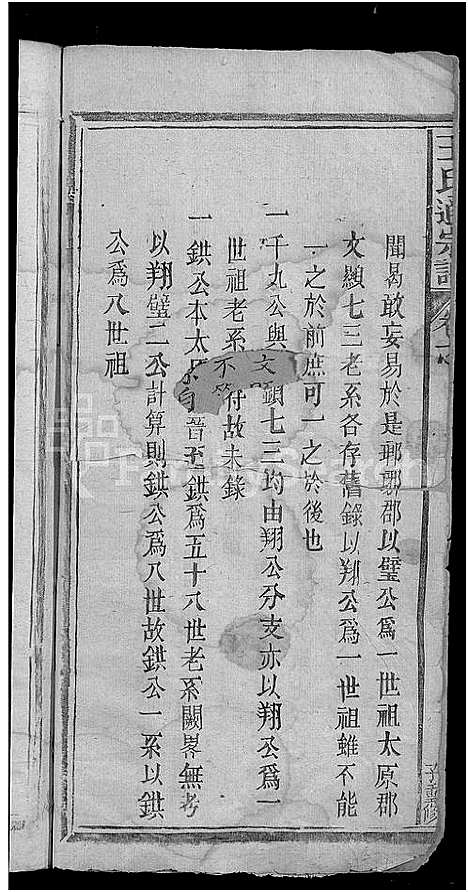 王氏通宗譜
聞曷敢妄易於是瑯琊郡以璧公爲一世祖太原郡
文顯七三老系各存舊錄以翔公爲一世祖雖不能
一之於前庶可一之於後也
一千九公與文顯七三均由翔公分支亦以翔公爲一
世祖老系不符故未錄
一鉷公本太原自晉至鉷爲五十八世老系闕畧無考
以翔璧二公計算則鉷公爲八世故鉷公一系以鉷
公爲八世祖
FamilySearch